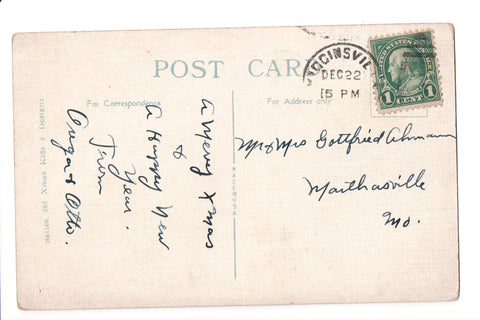 POST CARD
For Correspondence
For Address only
DEC 22
15 PM
UNITED STATES POSTAGE
1 CENT 1
A Merry Xmas
&
A Happy New
Year.
From
Otto.
Mr & Mrs Gottfried Ahmann
Marthasville
Mo.
MADE IN USA
Series 366 Xmas Kids 4 Designs